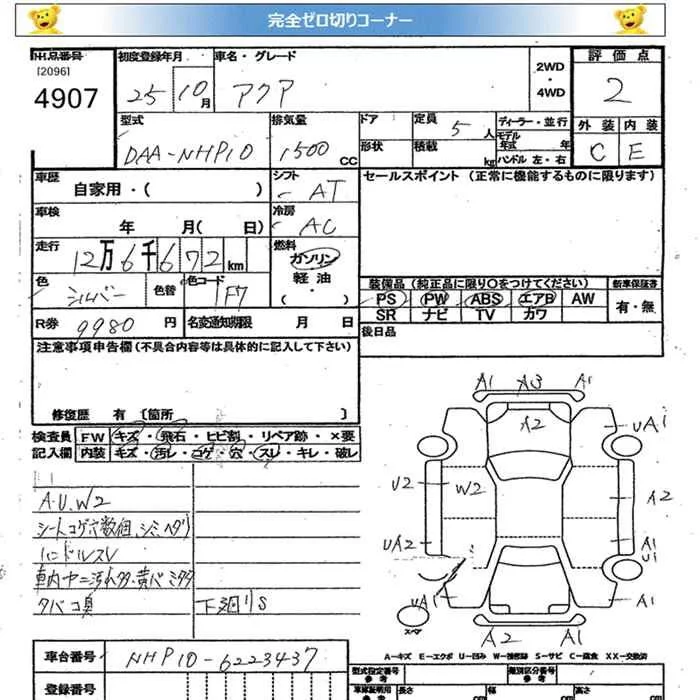 完全ゼロ切りコーナー
出品番号
[2096]
4907
初度登録年月
25 10月
車名・グレード
アクア
2WD
・
4WD
評価点
2
外装 内装
C E
型式
DAA-NHP10
排気量
1500cc
ドア
形状
定員
5人
積載
kg
ディーラー・並行
モデル
年式 年
ハンドル 左・右
車歴
自家用・( )
シフト
AT
セールスポイント (正常に機能するものに限ります)
車検
年 月( 日)
冷房
AC
走行
12万6千672km
燃料
ガソリン
軽油
・( )
色
シルバー
色替
色コード
1F7
装備品 (純正品に限り○をつけてください)
PS PW ABS エアB AW
SR ナビ TV カワ
新車保証書
有・無
R券 9980円
名変通知期限 月 日
後日品
注意事項申告欄 (不具合内容等は具体的に記入して下さい)
修復歴 有 [箇所 ]
検査員
記入欄
FW キズ・飛石・ヒビ割・リペア跡・×要
内装 キズ・汚レ・コゲ・穴・スレ・キレ・破レ
A.U.W2
シートコゲ穴数個、シミ、ヘタリ
ハンドルスレ
タバコ臭
下廻りS
A1 A3 A1
A2
UA1
U2
W2
A2
UA2
A1
U1
UA1
A1
スペア
A2 A1
A-キズ E-エクボ U-凹み W-補修跡 S-サビ C-腐食 XX-交換済
車台番号
NHP10-6223437
登録番号
型式指定番号
参考
類別区分番号
参考
車庫証明用
参考
長さ cm
幅 cm
高さ cm